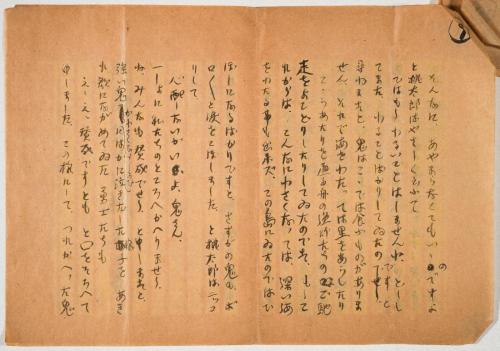 そんなに、あやまらなくてもいゝのですよ
と桃太郎はやさしく云つて
ではもうわるいことはしませんね、
てまた わることばかりしてゐたのでせう。ですと
尋ねますと 鬼はここでは食ふものがありま
せん、それで海をわたつては里をあらしたり
こゝらあたりを通る舟の漁師たちのご馳
走をよこどりしたりしてゐたのです。
れからは、こんなに なつては、深い海
をわたる事も出来ず、この島にゐたのではひ
ぼしになるばかりですと、さすがの鬼も、ポ
ロ〳〵と涙をこぼしました。と桃太郎はニッコ
りして
心配しないがいゝよ、鬼さん。
一しよに たちのところへかへりませう。
ね、みんなも賛成でせう。と申しますと、
強い鬼がにはかに泣きだした様子を あき
れ顔にながめてゐた 勇士たちも
えゝ、えゝ、賛成ですとも と口をそろへて
申しました。この様にして、つれかへつた鬼